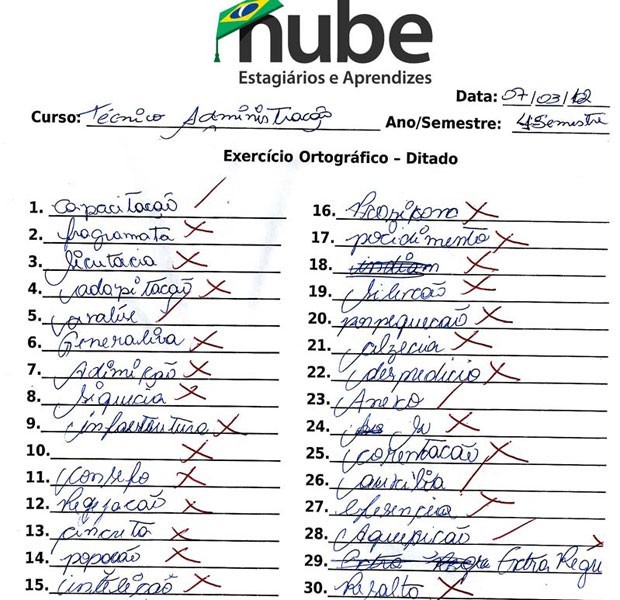 nube
Estagiários e Aprendizes
Data: 07/03/12
Curso: Técnico Administração
Ano/Semestre: 4 Semestre
Exercício Ortográfico – Ditado
1. capacitação
2. fragramata
3. licutacia
4. adapitação
5.
6. Generaliva
7. Admição
8. siqucia
9. infaestrutura
10.
11. consefo
12. Regejação
13. cincreta
14. popoção
15. inteleição
16.
17. pocidimento
18.
19. silencão
20. ponpequeção
21. alzecia
22. despedicio
23. Anexo
24.
25. corentacão
26. auxilia
27. eferençeia
28. Aquepição
29. Extra Regu
30. Resalto